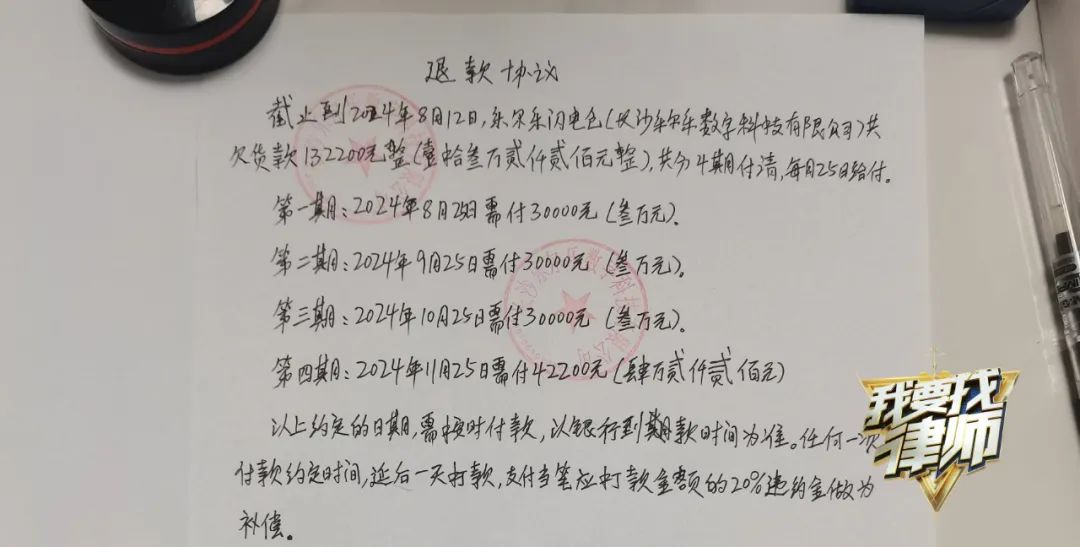 退款协议
截止到2024年8月12日,乐尔乐闪电仓(长沙乐尔乐数字科技有限公司)共
欠货款132200元整(壹拾叁万贰仟贰佰元整),共分4期付清,每月25日给付。
第一期:2024年8月25日需付30000元(叁万元)。
第二期:2024年9月25日需付30000元(叁万元)。
第三期:2024年10月25日需付30000元(叁万元)。
第四期:2024年11月25日需付42200元(肆万贰仟贰佰元)
以上约定的日期,需按时付款,以银行到期款时间为准。任何一次
付款约定时间,延后一天打款,支付当笔应打款金额的20%违约金做为
补偿。
我要找
律师